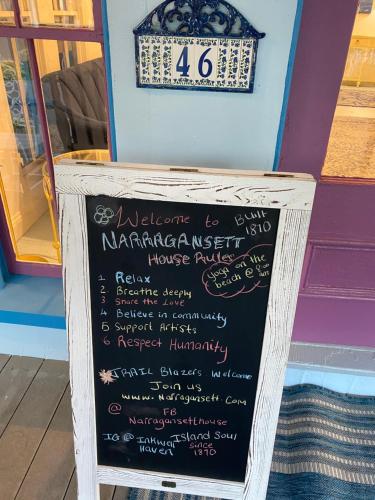 46
Welcome to
Built
1870
NARRAGANSETT
House Rules
Yoga on the
beach @ 8:00
am
1 Relax
2 Breathe deeply
3 Share the Love
4 Believe in community
5 Support Artists
6 Respect Humanity
TRAIL Blazers Welcome
Join us
www.Narragansett.Com
@ FB
Narragansetthouse
IG @ Inkwell
Haven
Island Soul
since
1870